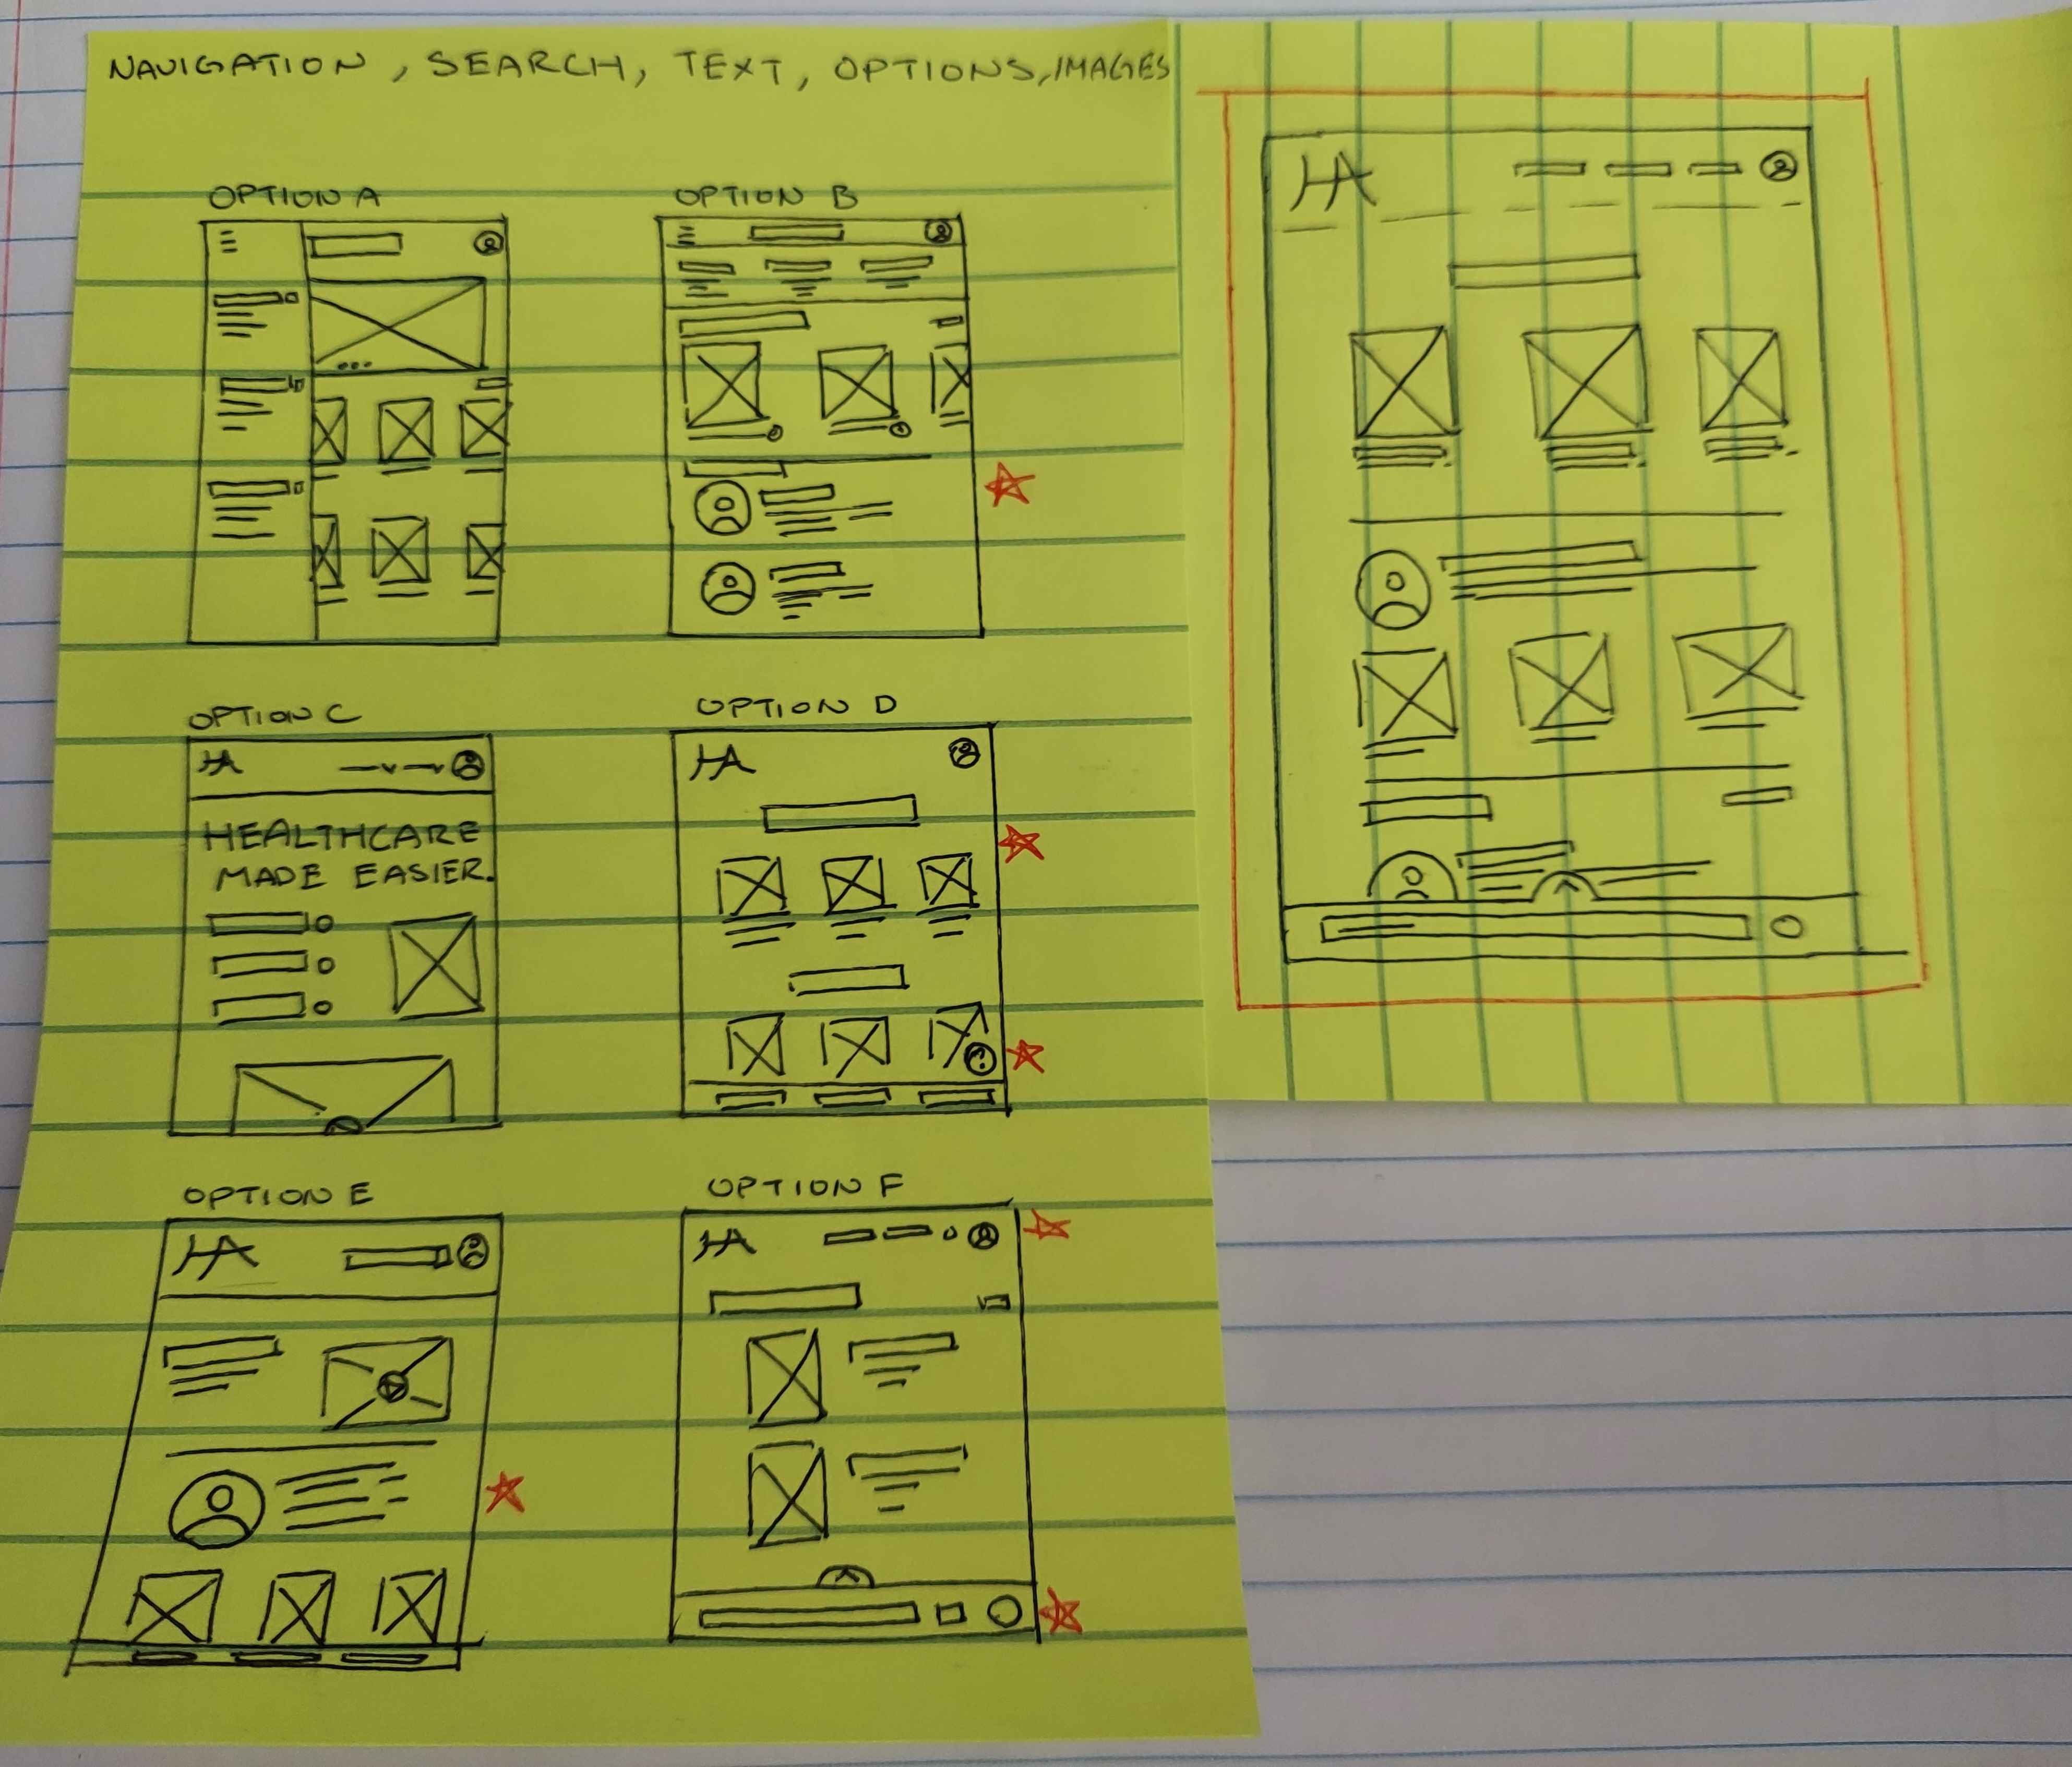 NAVIGATION, SEARCH, TEXT, OPTIONS, IMAGES
OPTION A
OPTION B
OPTION C
HA
HEALTHCARE
MADE EASIER.
OPTION D
HA
?
OPTION E
HA
OPTION F
HA
HA